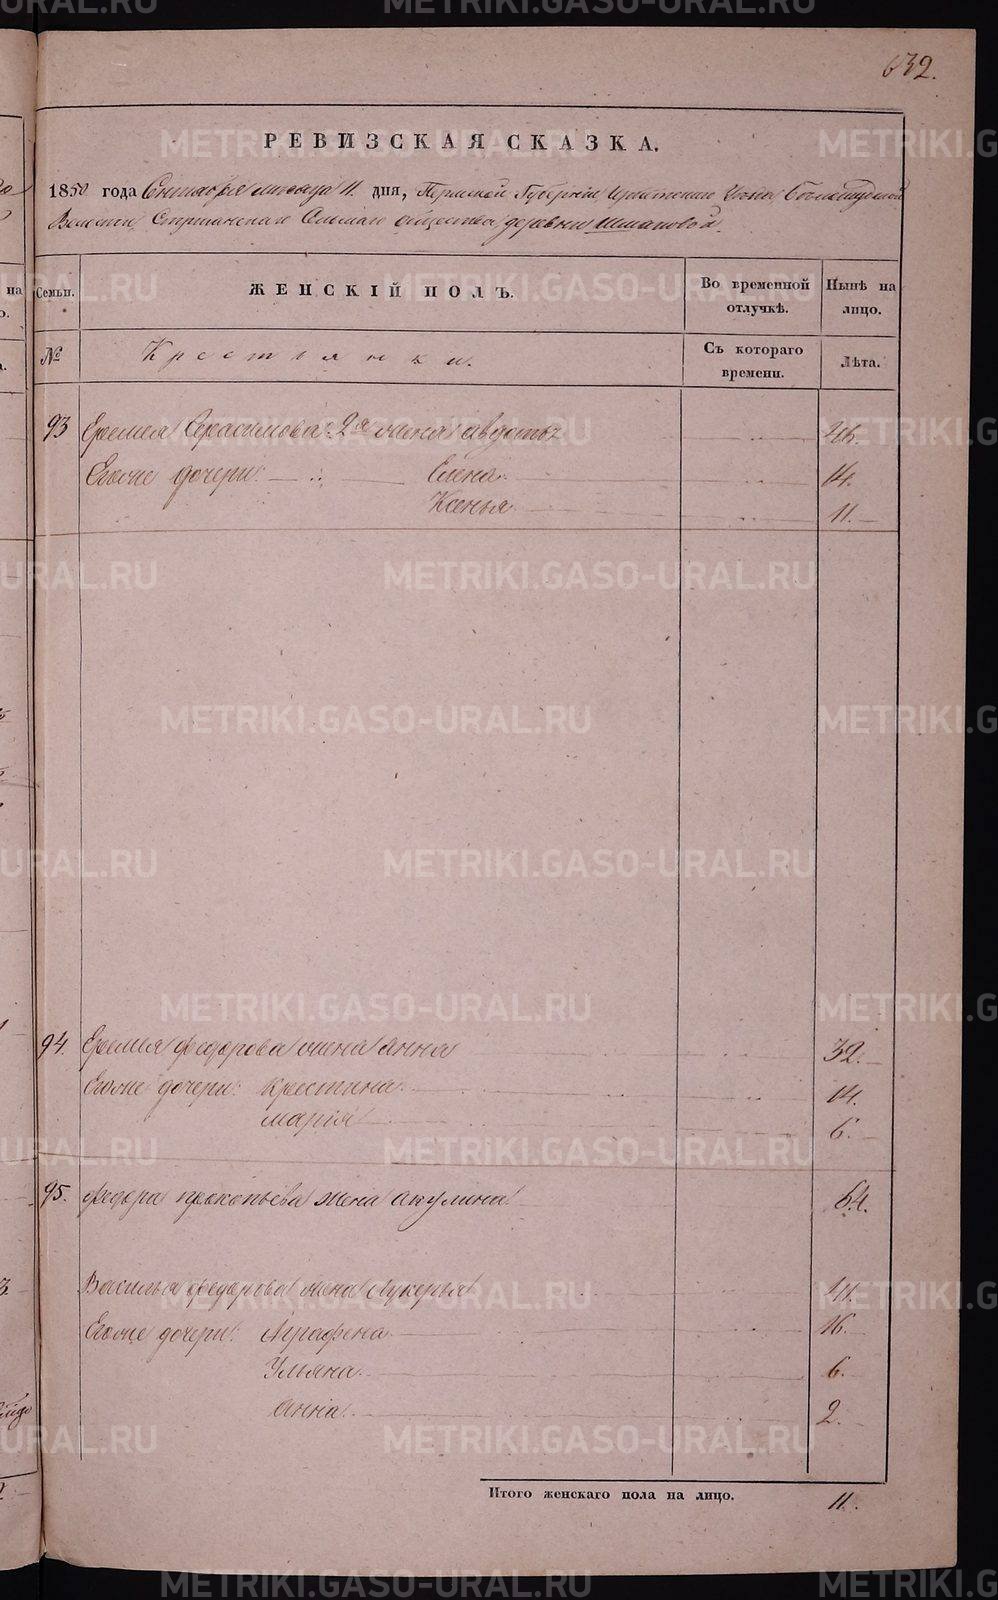 632.
РЕВИЗСКАЯ СКАЗКА.
1850 года Сентября месяца 11 дня, Пермской Губернии Ирбитскаго Уезда
Волости Сельскаго общества, деревни Шмаковой.
Семьи. ЖЕНСКІЙ ПОЛЪ. Во временной отлучкѣ. Нынѣ на лицо.
№ Крестьянки. Съ котораго времени. Лѣта.
93 Еремея Герасимова 2я жена Авдотья 46.
Егоже дочери: Елена 14.
Ксенья 11.
94. Еремея Федорова жена Анна 32.
Егоже дочери: Крестина 14.
Марія 6.
95. Федора Прокопьева жена Акулина 64.
Василья Федорова жена Лукерья 41.
Егоже дочери: Аграфена 16.
Ульяна 6.
Анна 2.
Итого женскаго пола на лицо. 11.
METRIKI.GASO-URAL.RU